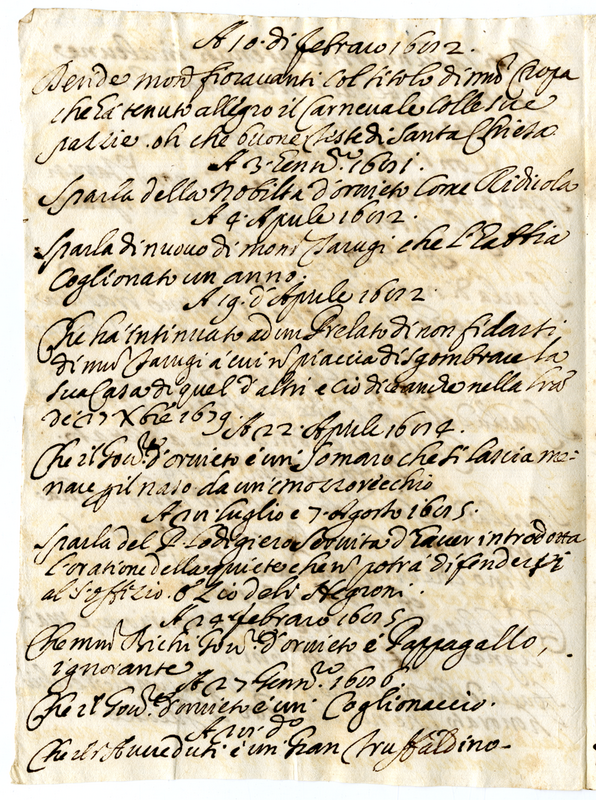 A 10. di febraio 1682.
Deride monsr fioravanti col titolo di msr
che ha tenuto allegro il Carnevale colle sue
pazzie. oh che buone teste di Santa Chiesa
A 3. Genn.ro 1681.
Sparla della Nobiltà d'orvieto come Ridicola
A 4. Aprile 1682.
Sparla di nuovo di monsr Tarugi che l'habbia
Coglionato un anno.
A 19. d'Aprile 1682.
Che ha intinuato ad un Prelato di non fidarsi
di msr Tarugi a cui piaccia di sgombrare la
sua Casa di quel d'altri e ciò dice anche nella
de 27 Xbre 1679.
A 22. Aprile 1684.
Che il Gov.re d'orvieto è un Somaro che si lascia me=
nare pil naso da un
A luglio e 7. Agosto 1685.
Sparla del P. Lodigiero Servita d'haver introdotta
l'oratione della quiete che potrà difendersi
al S. offizio. Zio deli Negroni.
A 24 febraro 1685
Che msr Bichi Gov.re d'orvieto è Pappagallo,
ignorante
A 27 Genn.ro 1686.
Che il Gov.re d'orvieto è un Coglionaccio.
A do
Che l'Avveduti è un gran truffaldino.